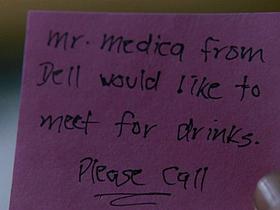 Mr. Medica from
Dell would like to
meet for drinks.
Please Call